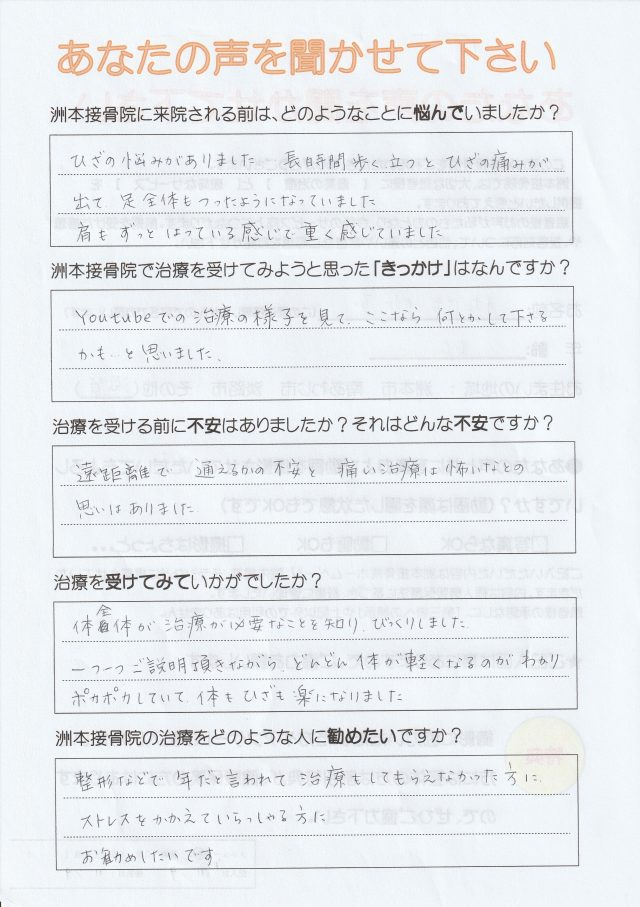 あなたの声を聞かせて下さい
洲本接骨院に来院される前は、どのようなことに悩んでいましたか？
ひざの悩みがありました 長時間歩く立つとひざの痛みが
出て 足全体もつったようになっていました
肩もずっとはっている感じで重く感じていました
洲本接骨院で治療を受けてみようと思った「きっかけ」はなんですか？
Youtubeでの治療の様子を見て、ここなら何とかして下さる
かも…と思いました、
治療を受ける前に不安はありましたか？それはどんな不安ですか？
遠距離で 通えるかの不安と 痛い治療は怖いなとの
思いはありました
治療を受けてみていかがでしたか？
体全体が治療が必要なことを知り、びっくりしました、
一つ一つご説明頂きながら、どんどん体が軽くなるのがわかり
ポカポカしていて、体もひざも楽になりました
洲本接骨院の治療をどのような人に勧めたいですか？
整形などで 年だと言われて 治療もしてもらえなかった方に、
ストレスをかかえていらっしゃる方に
お勧めしたいです